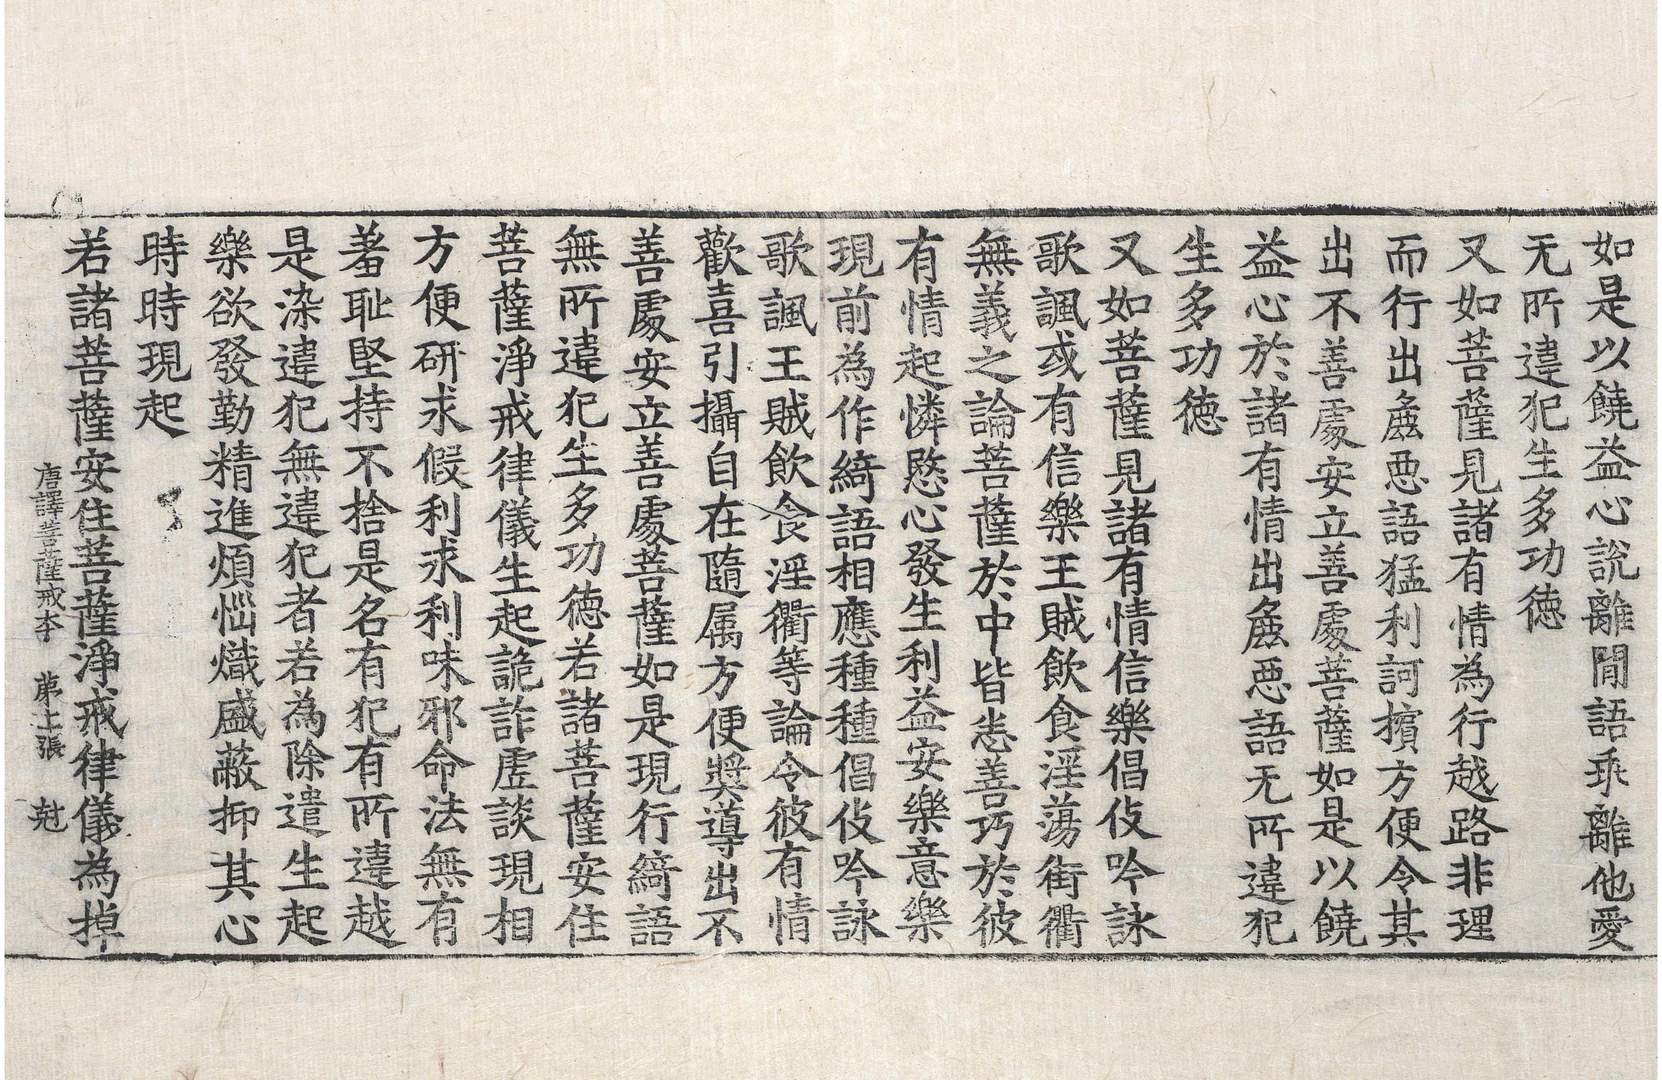 如是以饒益心說離閒語乖離他愛
无所違犯生多功德
又如菩薩見諸有情為行越路非理
而行出麁惡語猛利訶擯方便令其
出不善處安立善處菩薩如是以饒
益心於諸有情出麁惡語无所違犯
生多功德
又如菩薩見諸有情信樂倡伎吟詠
歌諷或有信樂王賊飲食淫蕩街衢
無義之論菩薩於中皆悉善巧於彼
有情起憐愍心發生利益安樂意樂
現前為作綺語相應種種倡伎吟詠
歌諷王賊飲食淫衢等論令彼有情
歡喜引攝自在隨属方便奬導出不
善處安立善處菩薩如是現行綺語
無所違犯生多功德若諸菩薩安住
菩薩淨戒律儀生起詭詐虛談現相
方便研求假利求利味邪命法無有
羞耻堅持不捨是名有犯有所違越
是染違犯無違犯者若為除遣生起
樂欲發勤精進煩惱熾盛蔽抑其心
時時現起
若諸菩薩安住菩薩淨戒律儀為掉
唐譯菩薩戒本 苐上張 尅